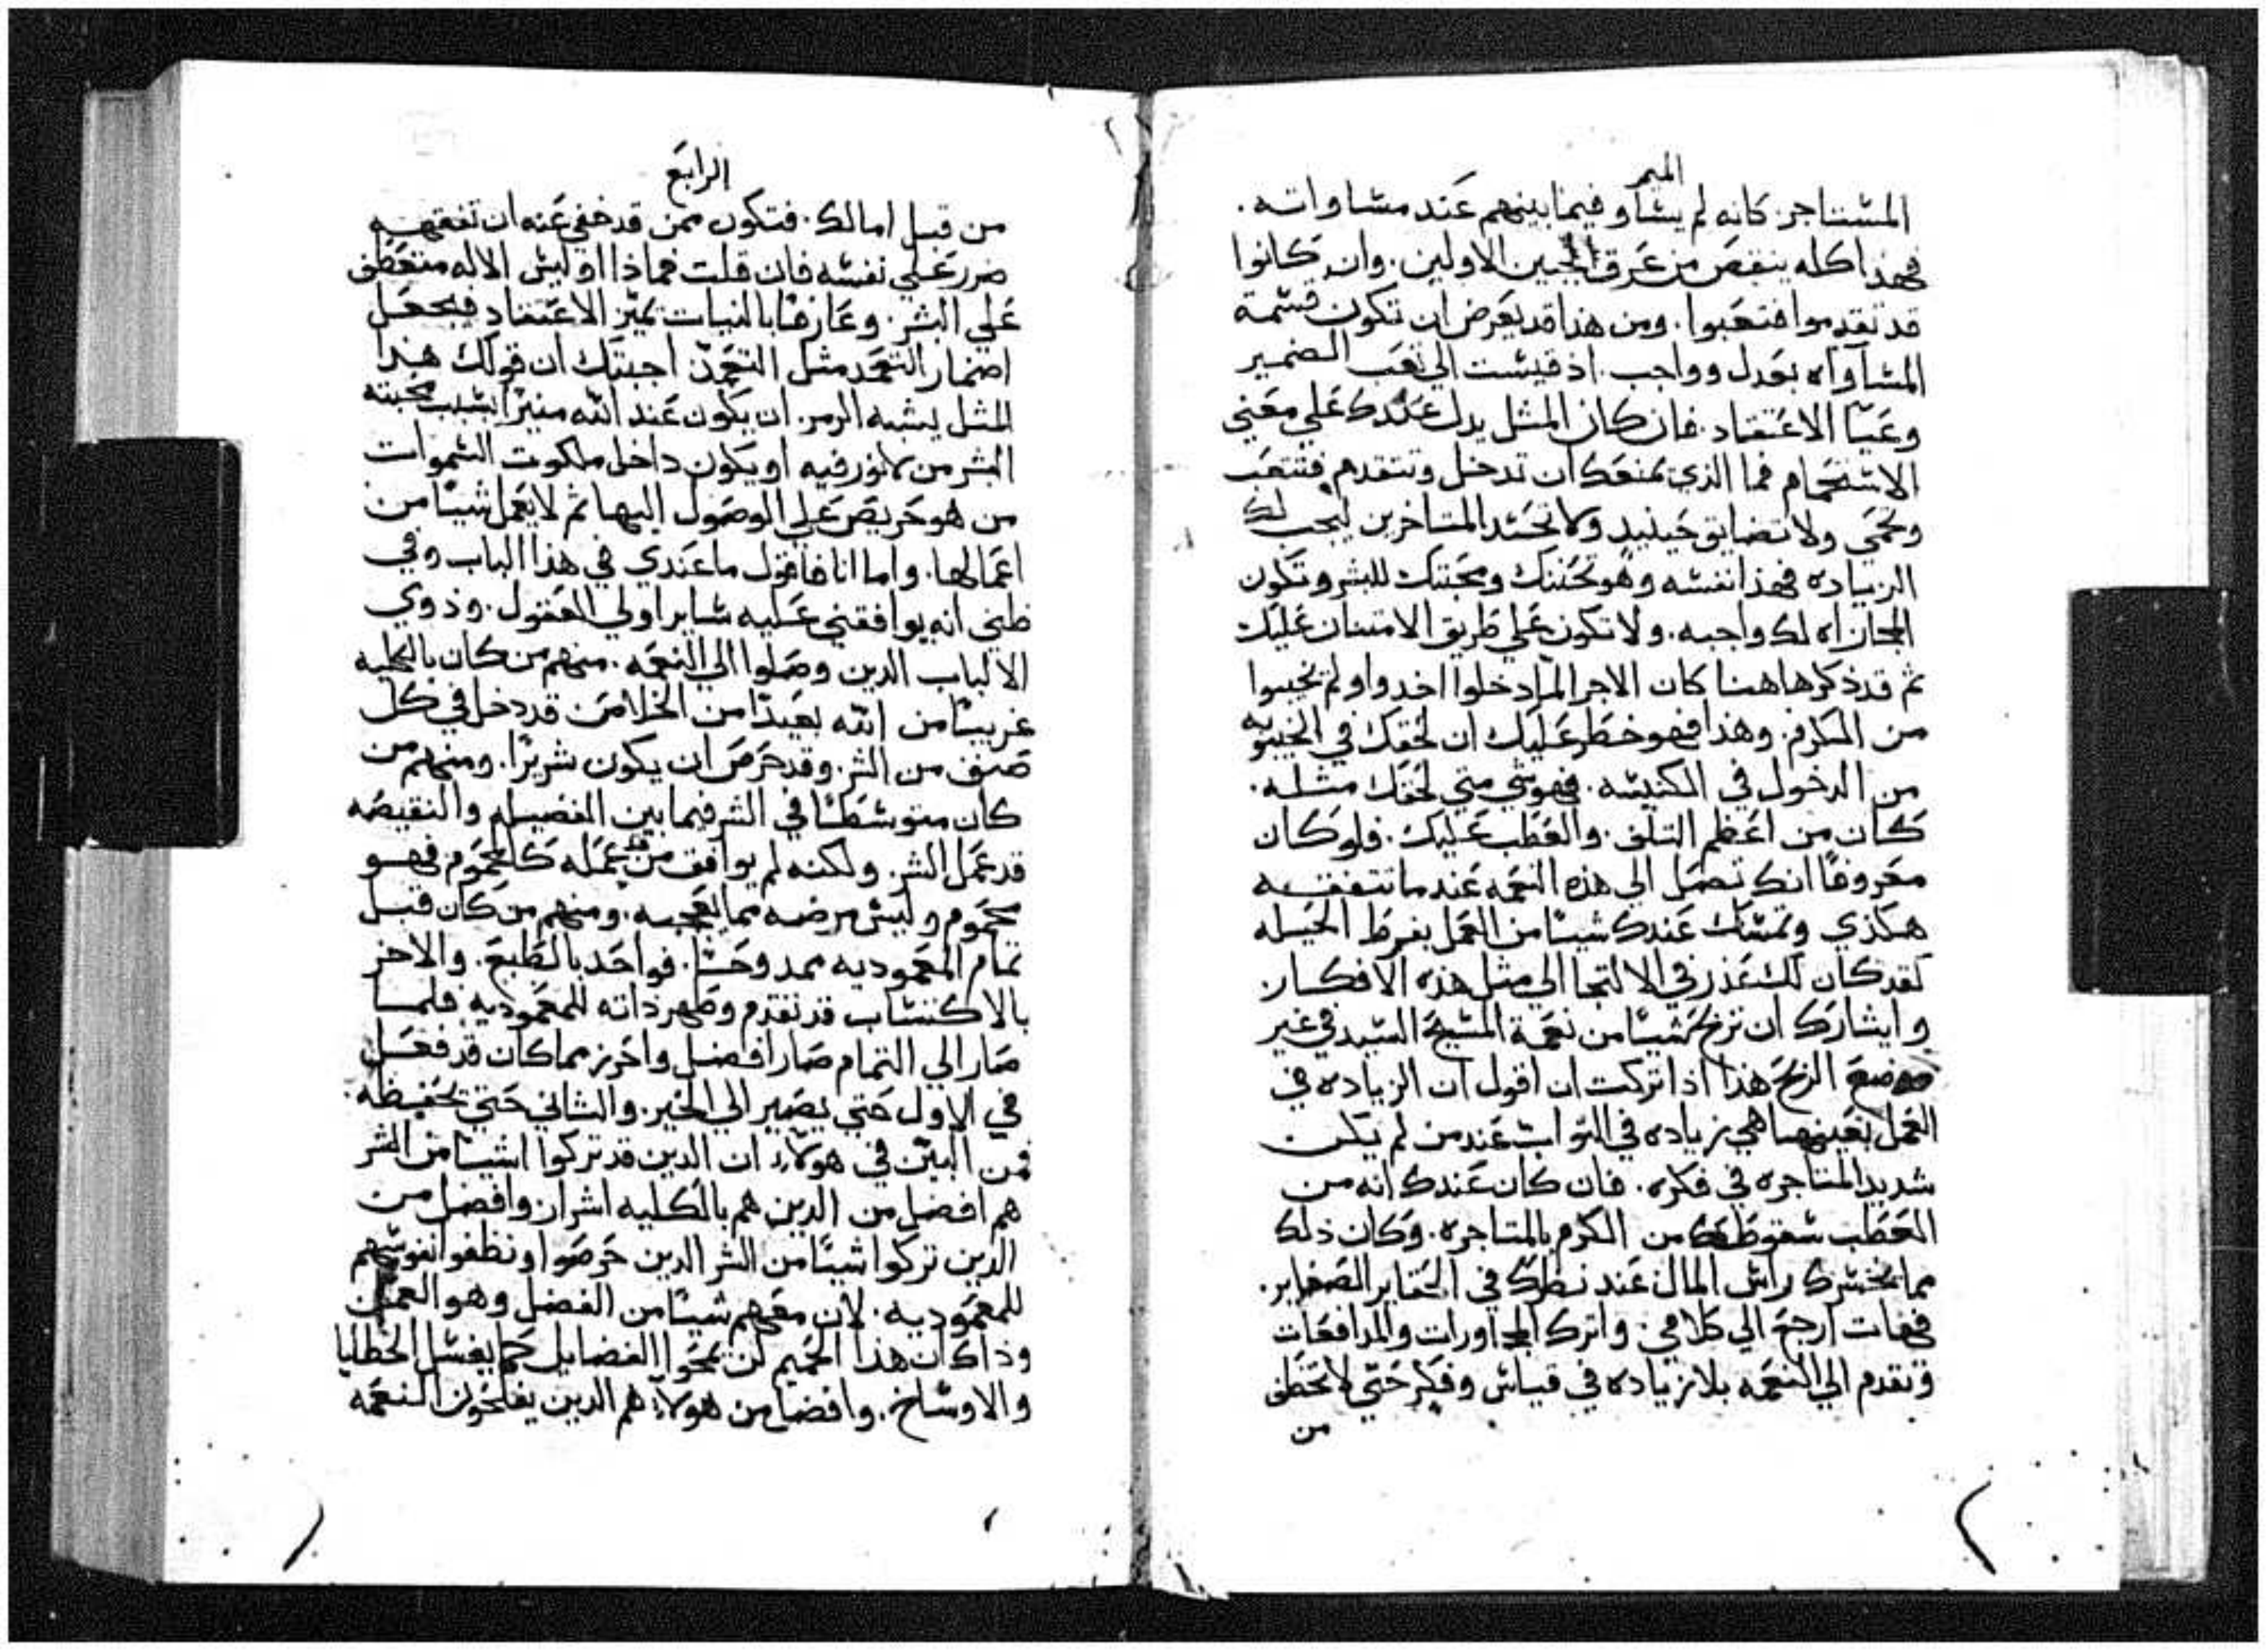 الميمر
المستاجر. كانه لم يساو فيما بينهم عند مساواته.
فهذا كله ينقص من عرق المحبين الاولين. وان كانوا
قد تقدموا فتعبوا. ومن هذا قد يعرض ان تكون قسمة
المساواه بعدل وواجب. اذ قيست الي تعب الضمير
وعيا الاعتقاد. فان كان المثل يدل عندك علي معني
الاستحمام فما الذي يمنعك ان تدخل وتتقدم فتتعب
وتحمي ولا تضايق حينيد ولا تحسد المتاخرين ليجب لك
الزياده فهذا نفسه وهو تحننك ومحبتك للبشر وتكون
المجازاه لك واجبه. ولا تكون علي طريق الامتنان عليك
ثم قد ذكر هاهنا كان الاجرا لما دخلوا اخدوا ولم يخيبوا
من الكرم. وهذا فهو خطر عليك ان لحقك في الخيبوبه
من الدخول في الكنيسه. فهو شي متي لحقك مثله.
كان من اعظم التلف. والعطب عليك. فلو كان
معروفا انك تصل الي هذه النعمه عند ما تتفقه
هكذي وتمسك عندك شيا من العمل بفرط الحيله
لقد كان لك عذر في الالتجا الي مثل هذه الافكار
وايثارك ان تربح شيا من نعمة المسيح السيد في غير
موضع الربح هذا اذا تركت ان اقول ان الزياده في
العمل بعينهما هي زياده في الثواب عند من لم يكن
شديد المتاجره في فكره. فان كان عندك انه من
العطب سقوطك من الكرم بالمتاجره. وكان ذلك
مما يخسرك راس المال عند نظرك في الحقاير الصغاير.
فهات ارجع الي كلامي. واترك المجاورات والمدافعات
وتقدم الي النعمه بلا زياده في قياس وفكر حتي لا تخطف
من
الرابع
من قبل امالك. فتكون ممن قد خفي عنه ان تفقهه
ضرر علي نفسه فان قلت فماذا اوليس الاله متعطف
علي البشر. وعارفا بالنيات يميز الاعتقاد فيجعل
اضمار التعمد مثل التعمد اجبتك ان قولك هذا
المثل يشبه الرمز. ان يكون عند الله منيرا بسبب محبته
البشر من لا نور فيه او يكون داخل ملكوت السموات
من هو حريص علي الوصول اليها ثم لا يعمل شيا من
اعمالها. واما انا فاقول ما عندي في هذا الباب وفي
ظني انه يوافقني عليه ساير اولي العقول. وذوي
الالباب الدين وصلوا الي النعمه. منهم من كان بالكليه
غريبا من الله بعيدا من الخلاص قد دخل في كل
صنف من الشر. وقد حرص ان يكون شريرا. ومنهم من
كان متوسطا في الشر فيما بين الفضيله والنقيصه
قد عمل الشر. ولكنه لم يوافق من عمله كالمحموم فهو
محموم وليس مرضه مما يعجبه. ومنهم من كان قبل
تمام المعموديه ممدوحا. فواحد بالطبع. والاخر
بالاكتساب قد تقدم وطهر ذاته للمعموديه فلما
صار الي التمام صار افضل واحرز مما كان قد فعل
في الاول حتي يصير الي الخير. والثاني حتي تحفظه
فمن البين في هولاء ان الدين قد تركوا اشيا من الشر
هم افضل من الدين هم بالكليه اشرار وافضل من
الدين تركوا شيا من الشر الدين حرصوا ونظفوا نفوسهم
للمعموديه. لان معهم شيا من الفضل وهو العمل
وذاك ان هذا الحميم لن يمحوا الفضايل كما يغسل الخطايا
والاوساخ. وافضل من هولاء هم الدين يفلحون النعمه